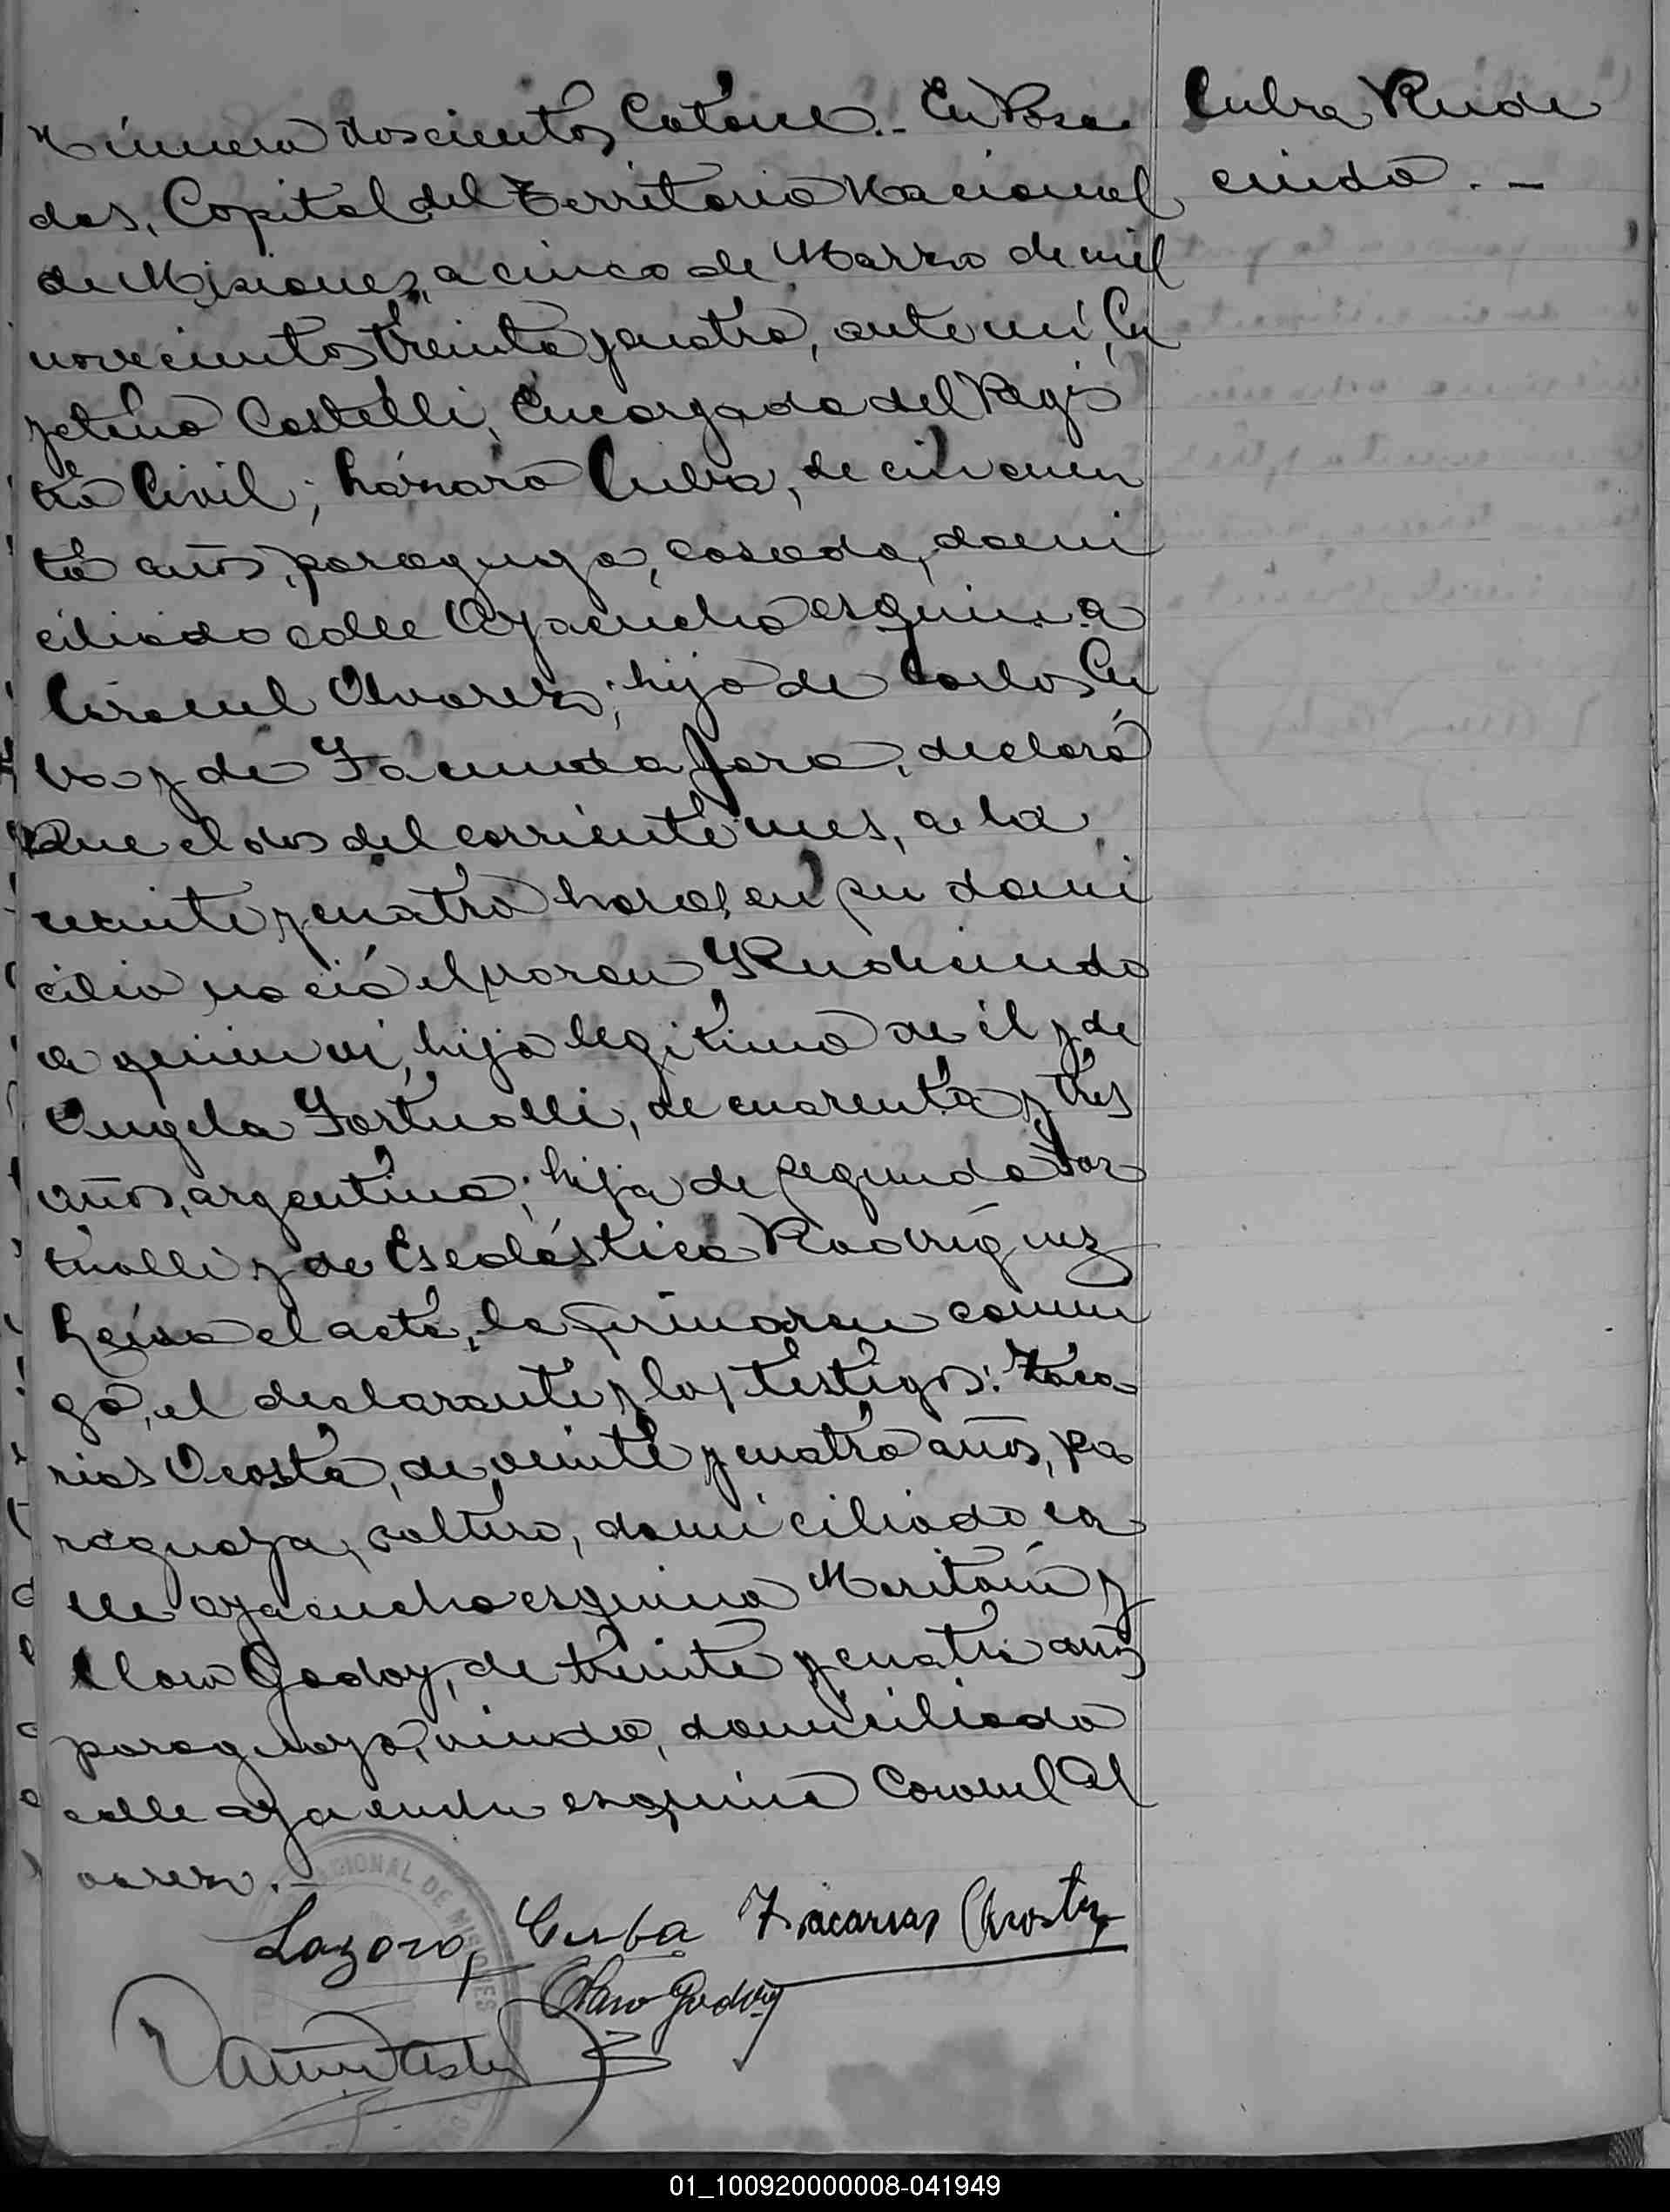 Número doscientos Catorce.- En Posa
das, Capital del Territorio Nacional
de Misiones, a cinco de Marzo de mil
novecientos treinta y cuatro, ante mí, Ca
yetano Castelli, Encargado del Regis
tro Civil; Lázaro Cuba, de cincuen
ta años, paraguayo, casado, domi
ciliado calle Ayacucho esquina
Coronel Alvarez; hijo de Carlos Cu
ba y de Facunda Jara, declaró
Que el dos del corriente mes, a la
veinte y cuatro horas, en su domi
cilio nació el varon Rudecindo
a quien vi, hijo legítimo de él y de
Angela Fortunalli, de cuarenta y tres
años, argentina; hija de Segundo For
tunalli y de Escolástica Rodríguez
Leída el acta, la firmaron conmi
go, el declarante y los testigos: Zaca
rias Acosta, de veinte y cuatro años, pa
raguayo, soltero, domiciliado ca
lle Ayacucho esquina Maritain y
Claro Godoy, de treinta y cuatro años
paraguayo, viudo, domiciliado
calle Ayacucho esquina Coronel Al
varez.-
Cuba Rude
cindo.-
Lazaro Cuba Zacarias Acosta
Claro Godoy
NACIONAL DE MISIONES
01_100920000008-041949